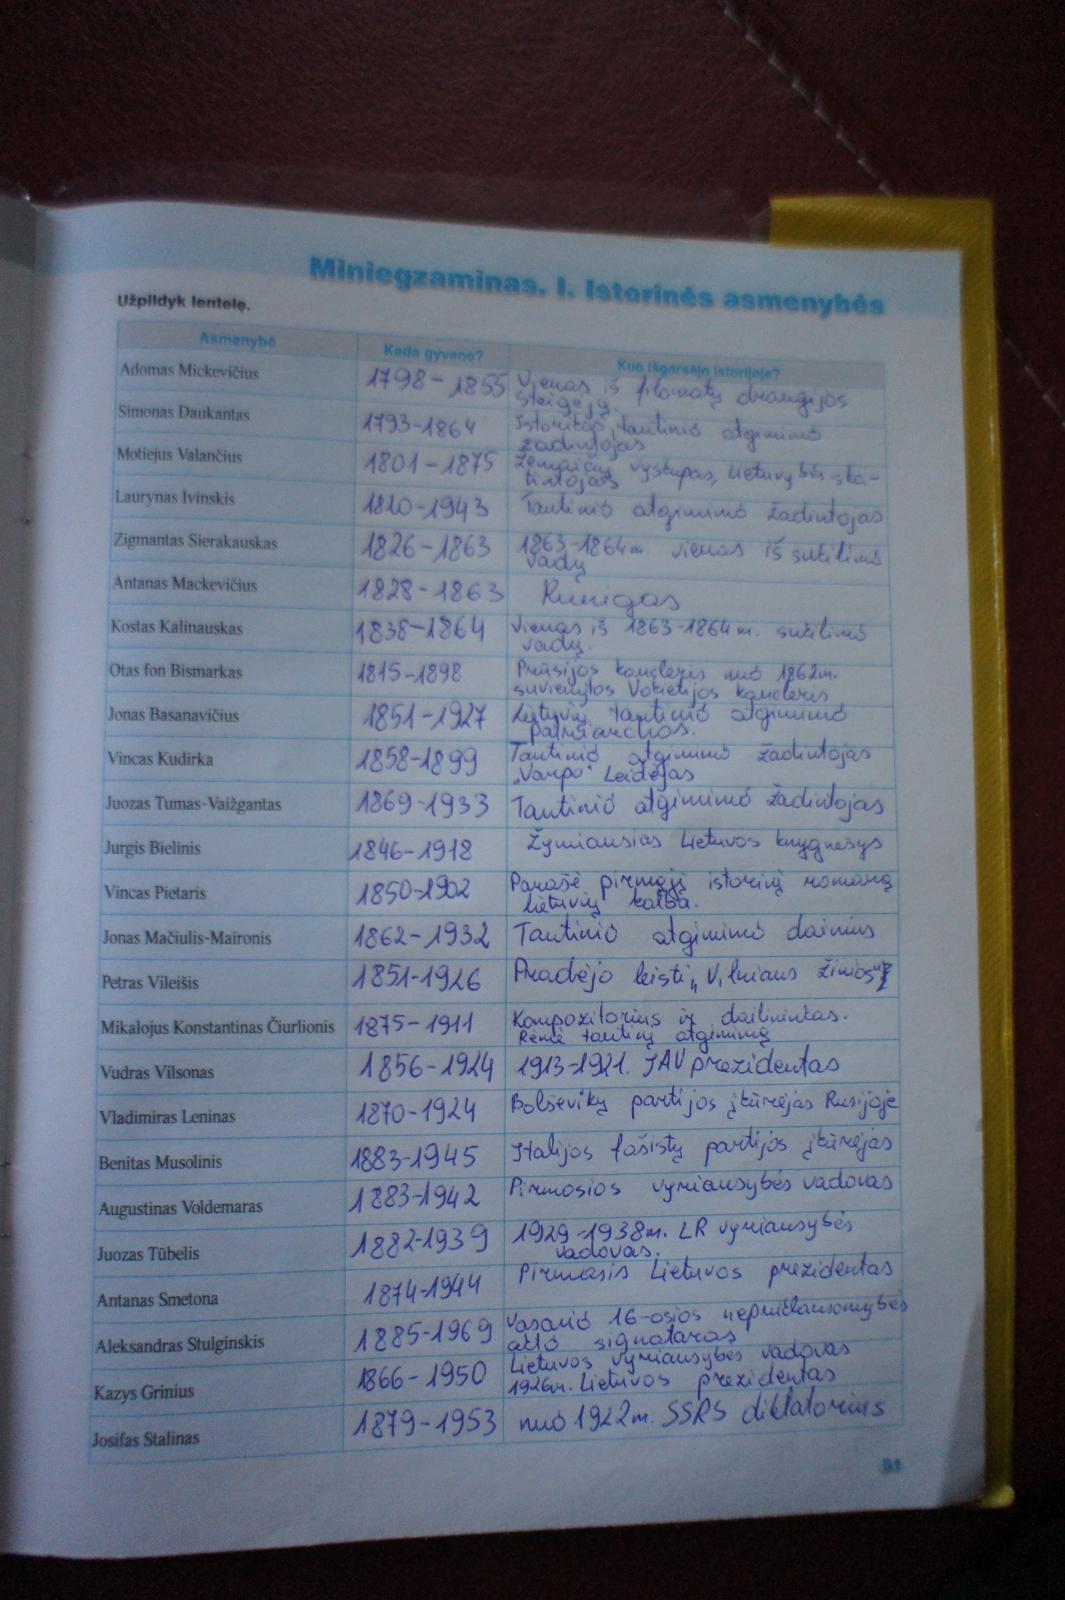 Miniegzaminas. I. Istorinės asmenybės
Užpildyk lentelę.
Asmenybė Kada gyveno? Kuo išgarsėjo istorijoje?
Adomas Mickevičius 1798-1855 Vienas iš filomatų draugijos
steigėjų.
Simonas Daukantas 1793-1864 Istorikas, tautinio atgimimo
žadintojas
Motiejus Valančius 1801-1875 Žemaičių vyskupas, Lietuvybės ska-
tintojas
Laurynas Ivinskis 1810-1943 Tautinio atgimimo žadintojas
Zigmantas Sierakauskas 1826-1863 1863-1864m. vienas iš sukilimo
vadų
Antanas Mackevičius 1828-1863 Kunigas
Kostas Kalinauskas 1838-1864 Vienas iš 1863-1864m. sukilimo
vadų.
Otas fon Bismarkas 1815-1898 Prūsijos kancleris nuo 1862m.
suvienytos Vokietijos kancleris
Jonas Basanavičius 1851-1927 Lietuvių tautinio atgimimo
patriarchas.
Vincas Kudirka 1858-1899 Tautinio atgimimo žadintojas
„Varpo" Leidėjas
Juozas Tumas-Vaižgantas 1869-1933 Tautinio atgimimo žadintojas
Jurgis Bielinis 1846-1918 Žymiausias Lietuvos knygnešys
Vincas Pietaris 1850-1902 Parašė pirmąjį istorinį romaną
lietuvių kalba.
Jonas Mačiulis-Maironis 1862-1932 Tautinio atgimimo dainius
Petras Vileišis 1851-1926 Pradėjo leisti „Vilniaus žinios"
Mikalojus Konstantinas Čiurlionis 1875-1911 Kompozitorius ir dailininkas.
Rėmė tautinį atgimimą
Vudras Vilsonas 1856-1924 1913-1921. JAV prezidentas
Vladimiras Leninas 1870-1924 Bolševikų partijos įkūrėjas Rusijoje
Benitas Musolinis 1883-1945 Italijos fašistų partijos įkūrėjas
Augustinas Voldemaras 1883-1942 Pirmosios vyriausybės vadovas
Juozas Tūbelis 1882-1939 1929-1938m. LR vyriausybės
vadovas.
Antanas Smetona 1874-1944 Pirmasis Lietuvos prezidentas
Aleksandras Stulginskis 1885-1969 Vasario 16-osios nepriklausomybės
akto signataras
Kazys Grinius 1866-1950 Lietuvos vyriausybės vadovas
1926m. Lietuvos prezidentas
Josifas Stalinas 1879-1953 nuo 1922m. SSRS diktatorius
51